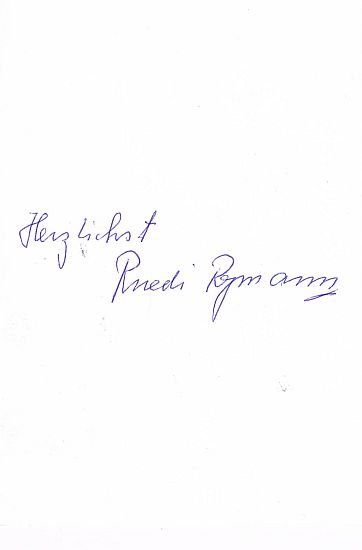 Herzlichst
Ruedi Rymann